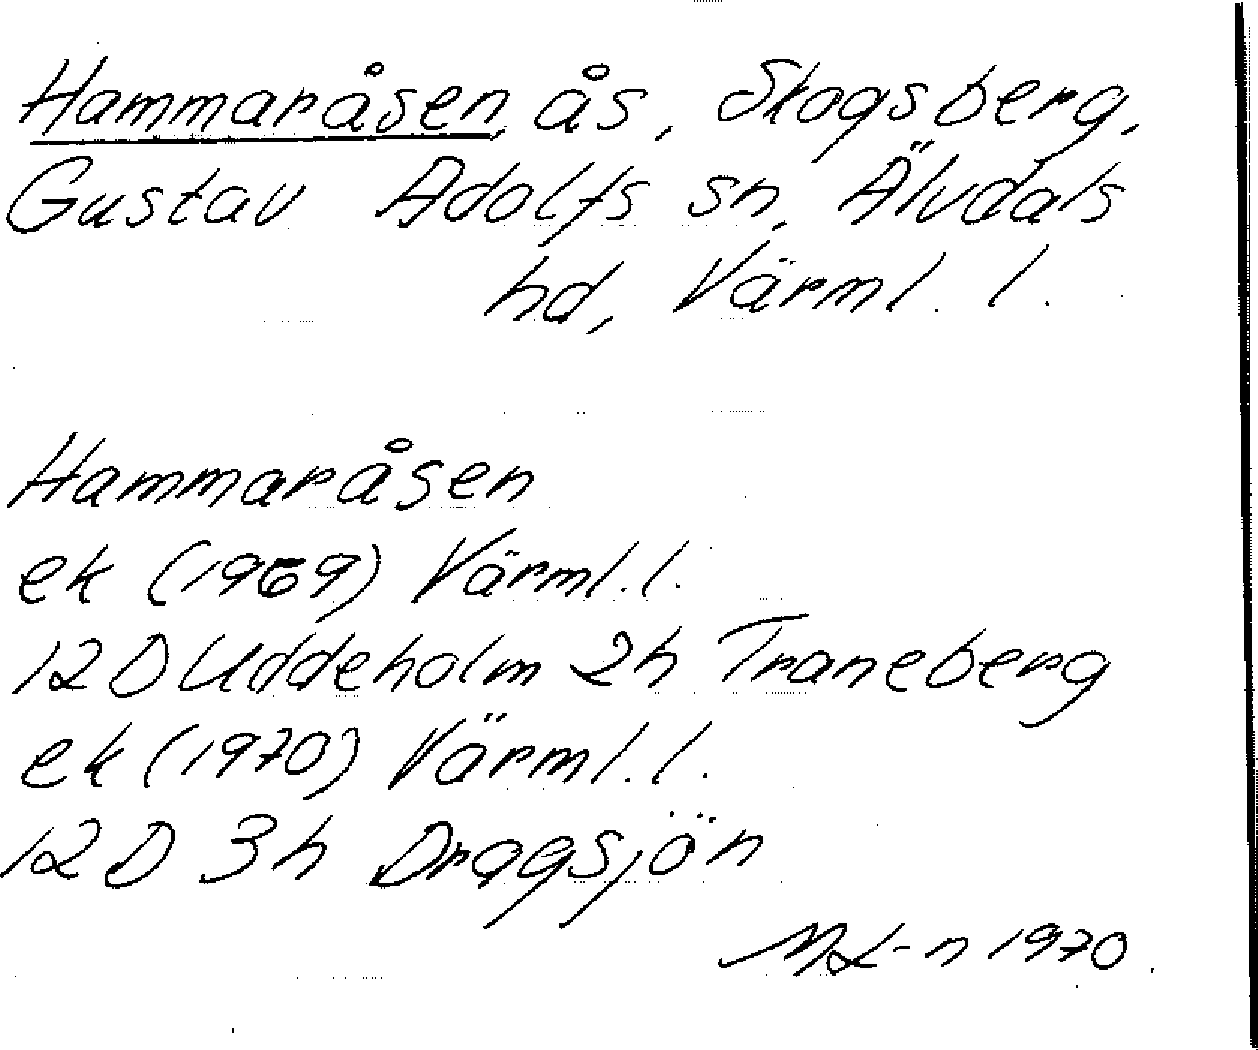 Hammaråsen, ås, Skogsberg,
Gustav Adolfs sn, Älvdals
hd, Värml. l.
Hammaråsen
ek (1969) Värml. l.
12 D Uddeholm 2h Traneberg
ek (1970) Värml. l.
12 D 3h Dragsjön
1970.